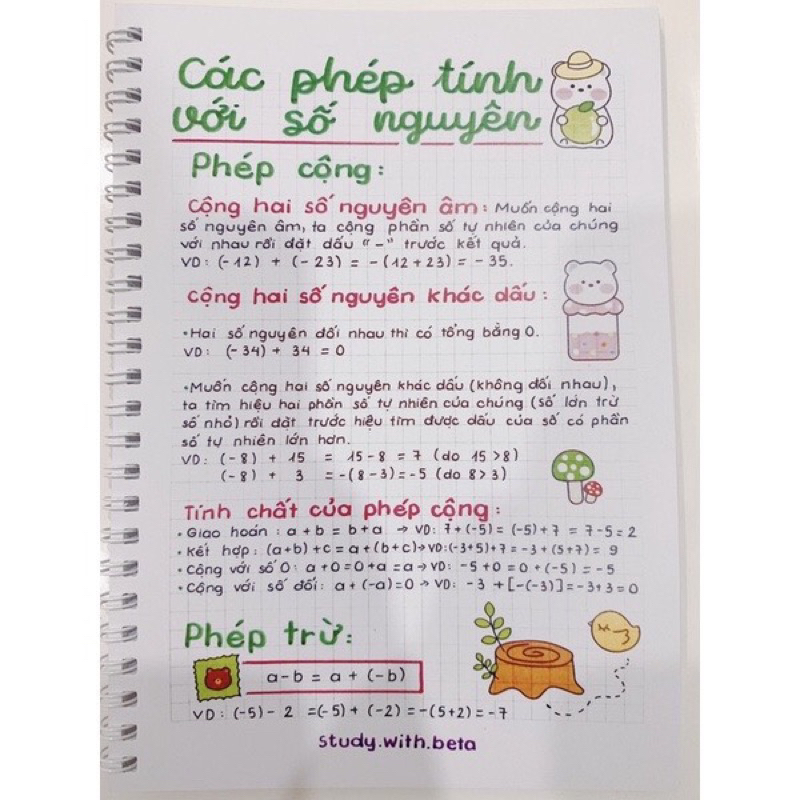 Các phép tính
với số nguyên
Phép cộng:
Cộng hai số nguyên âm: Muốn cộng hai
số nguyên âm, ta cộng phần số tự nhiên của chúng
với nhau rồi đặt dấu "-" trước kết quả.
VD: (-12) + (-23) = -(12+23) = -35.
Cộng hai số nguyên khác dấu:
•Hai số nguyên đối nhau thì có tổng bằng 0.
VD: (-34) + 34 = 0
•Muốn cộng hai số nguyên khác dấu (không đối nhau),
ta tìm hiệu hai phần số tự nhiên của chúng (số lớn trừ
số nhỏ) rồi đặt trước hiệu tìm được dấu của số có phần
số tự nhiên lớn hơn.
VD: (-8) + 15 = 15-8 = 7 (do 15>8)
(-8) + 3 = -(8-3) = -5 (do 8>3)
Tính chất của phép cộng:
• Giao hoán: a+b = b+a → VD: 7+(-5) = (-5)+7 = 7-5 = 2
• Kết hợp: (a+b)+c = a+(b+c) → VD: (-3+5)+7 = -3+(5+7) = 9
• Cộng với số 0: a+0 = 0+a = a → VD: -5+0 = 0+(-5) = -5
• Cộng với số đối: a+(-a)=0 → VD: -3 +[-(-3)] = -3+3 = 0
Phép trừ:
a-b = a + (-b)
VD: (-5) - 2 = (-5) + (-2) = -(5+2) = -7
study.with.beta